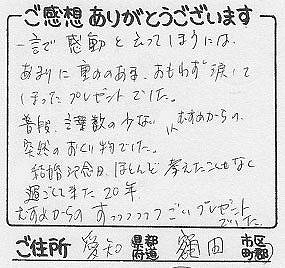 ご感想 ありがとうございます
一言で感動と云ってしまうには、
あまりに重みのある、おもわず涙して
しまった プレゼントでした。
普段、言葉数の少ない むすめからの、
突然のおくり物でした。
結婚記念日、ほとんど考えたこともなく
過ごして来た20年。
むすめからの すっっっっっごいプレゼント
でした。
ご住所 愛知 都道府県 額田 市区町郡